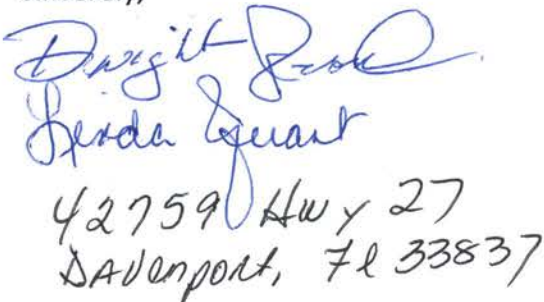 Dwight
Linda
42759 Hwy 27
DAVenport, Fl 33837